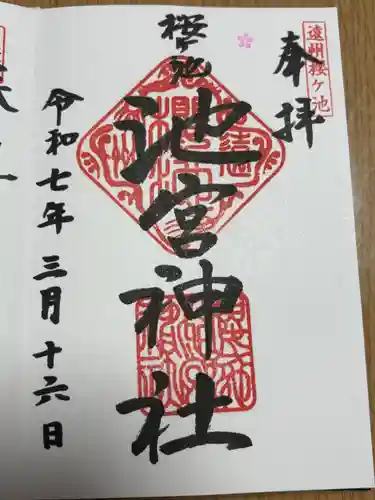 奉拝
遠州桜ヶ池
桜ヶ池
池宮神社
令和七年三月十六日